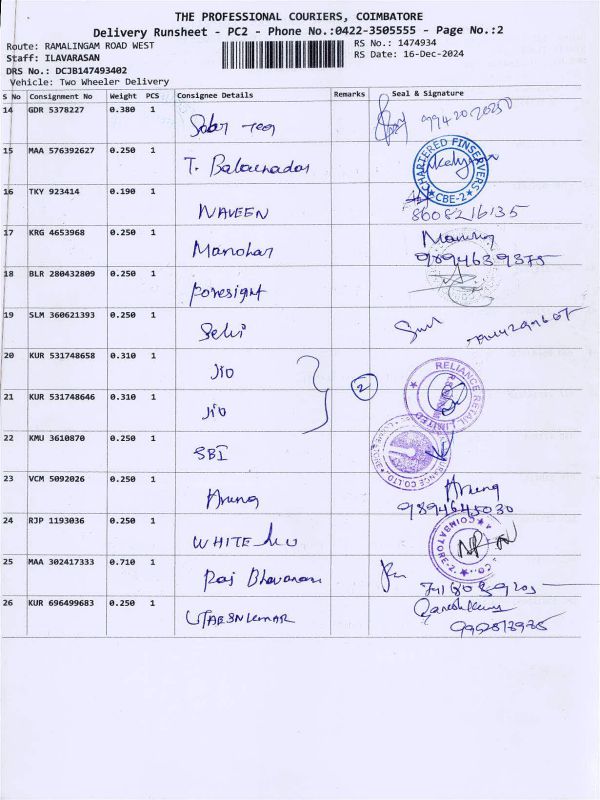 THE PROFESSIONAL COURIERS, COIMBATORE
Delivery Runsheet - PC2 - Phone No.:0422-3505555 - Page No.:2
Route: RAMALINGAM ROAD WEST
RS No.: 1474934
Staff: ILAVARASAN
RS Date: 16-Dec-2024
DRS No.: DCJB147493402
Vehicle: Two Wheeler Delivery
S No Consignment No Weight PCS Consignee Details Remarks Seal & Signature
14 GDR 5378227 0.380 1
15 MAA 576392627 0.250 1 T.
CHARTERED FINSERVERS CBE-2
16 TKY 923414 0.190 1 NAVEEN
8608216135
17 KRG 4653968 0.250 1 Manohar
9894639375
18 BLR 280432809 0.250 1 Foresight
19 SLM 360621393 0.250 1 Selvi
20 KUR 531748658 0.310 1 Jio
2
RELIANCE RETAIL LIMITED
21 KUR 531748646 0.310 1 Jio
22 KMU 3610870 0.250 1 SBI
23 VCM 5092026 0.250 1 Arung
Arung
9894645030
24 RJP 1193036 0.250 1 WHITE
COIMBATORE-2.
25 MAA 302417333 0.710 1 Raj Bhavanam
26 KUR 696499683 0.250 1